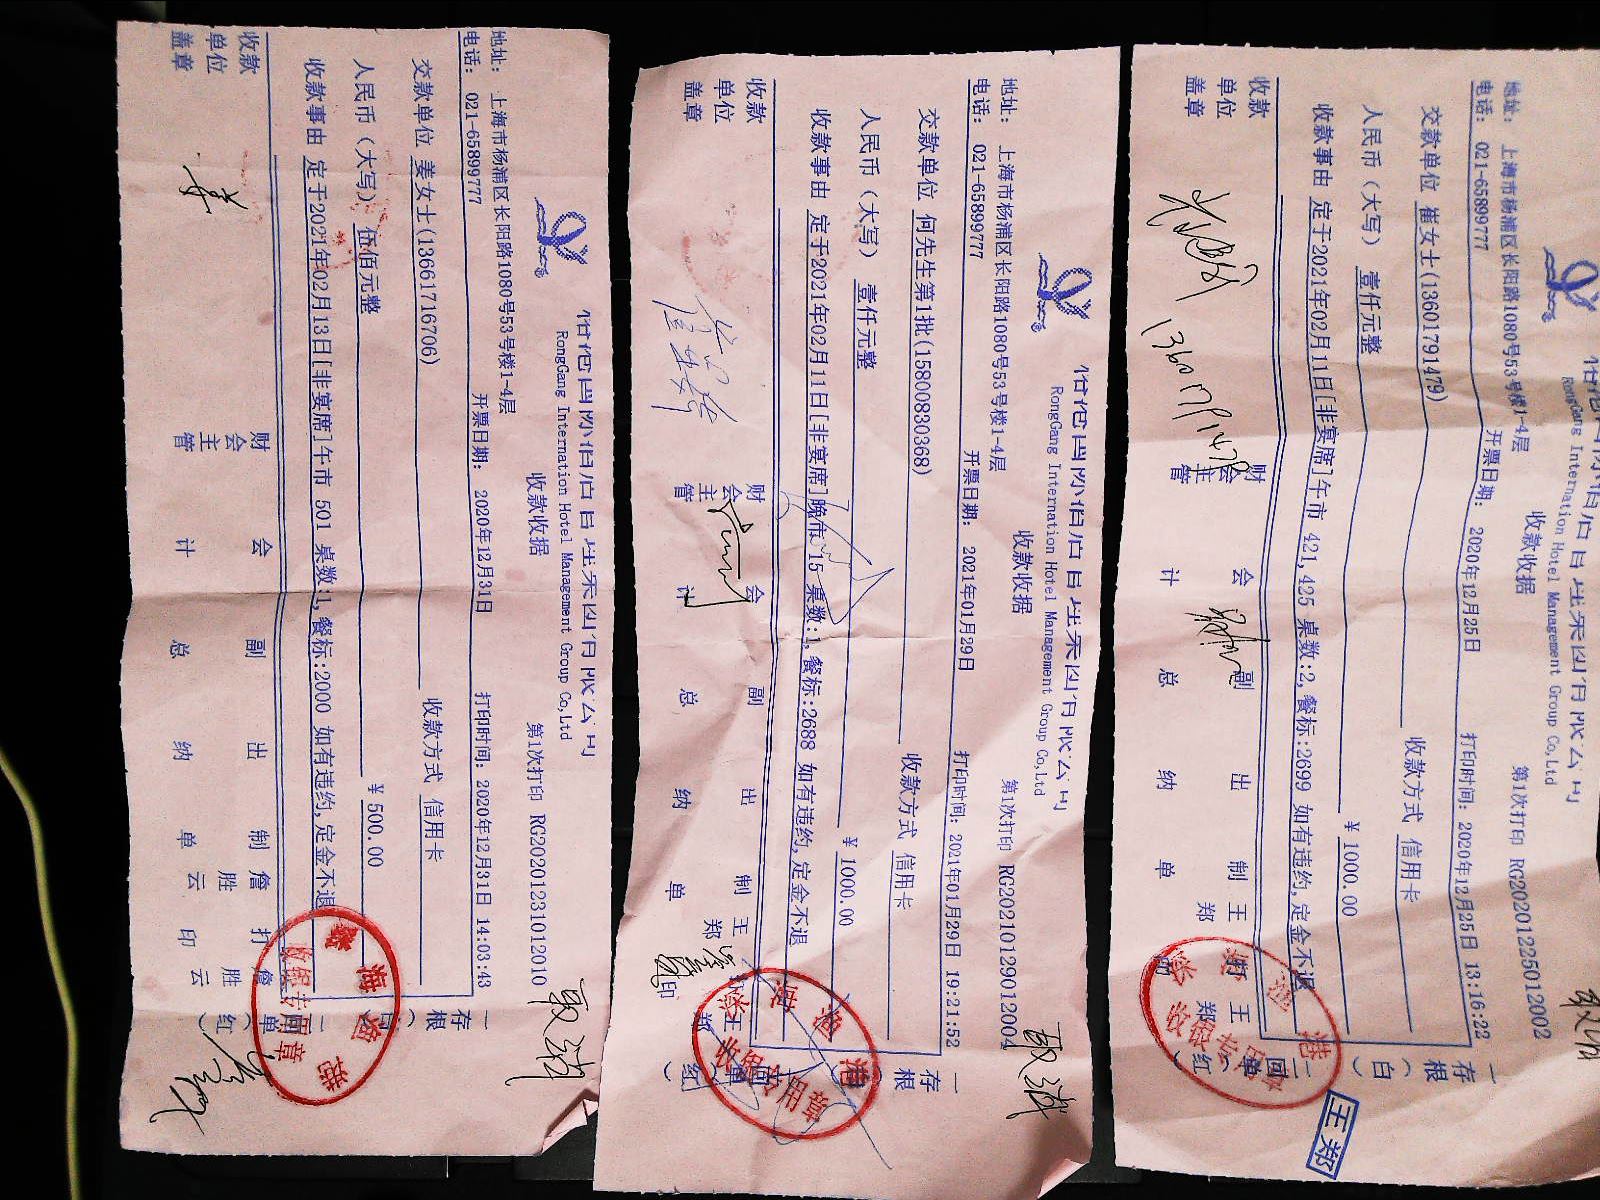 RongGang International Hotel Management Group Co,Ltd
收款收据
第1次打印 RG20201231012010
地址: 上海市杨浦区长阳路1080号53号楼1-4层
电话: 021-65899777
开票日期: 2020年12月31日
打印时间: 2020年12月31日 14:03:43
交款单位 姜女士(13661716706)
收款方式 信用卡
人民币（大写） 伍佰元整
￥ 500.00
收款事由 定于2021年02月13日[非宴席]午市 501 桌数:1,餐标:2000 如有违约,定金不退
收款单位盖章
财会主管
会计
副总
出纳
制单 詹胜云
打印 詹胜云
一存根（白）
二回单（红）
收银专用章
RongGang International Hotel Management Group Co,Ltd
收款收据
第1次打印 RG20210129012004
地址: 上海市杨浦区长阳路1080号53号楼1-4层
电话: 021-65899777
开票日期: 2021年01月29日
打印时间: 2021年01月29日 19:21:52
交款单位 何先生第1批(15800830368)
收款方式 信用卡
人民币（大写） 壹仟元整
￥ 1000.00
收款事由 定于2021年02月11日[非宴席]晚市 15 桌数:1,餐标:2688 如有违约,定金不退
收款单位盖章
财会主管
会计
副总
出纳
制单 王郑
打印 王郑
一存根
二回单（红）
收银专用章
RongGang International Hotel Management Group Co,Ltd
收款收据
第1次打印 RG20201225012002
地址: 上海市杨浦区长阳路1080号53号楼1-4层
电话: 021-65899777
开票日期: 2020年12月25日
打印时间: 2020年12月25日 13:16:22
交款单位 崔女士(13601791479)
收款方式 信用卡
人民币（大写） 壹仟元整
￥ 1000.00
收款事由 定于2021年02月11日[非宴席]午市 421,425 桌数:2,餐标:2699 如有违约,定金不退
收款单位盖章
财会主管
会计
副总
出纳
制单 王郑
打印 王郑
一存根（白）
二回单（红
收银专用章
王郑